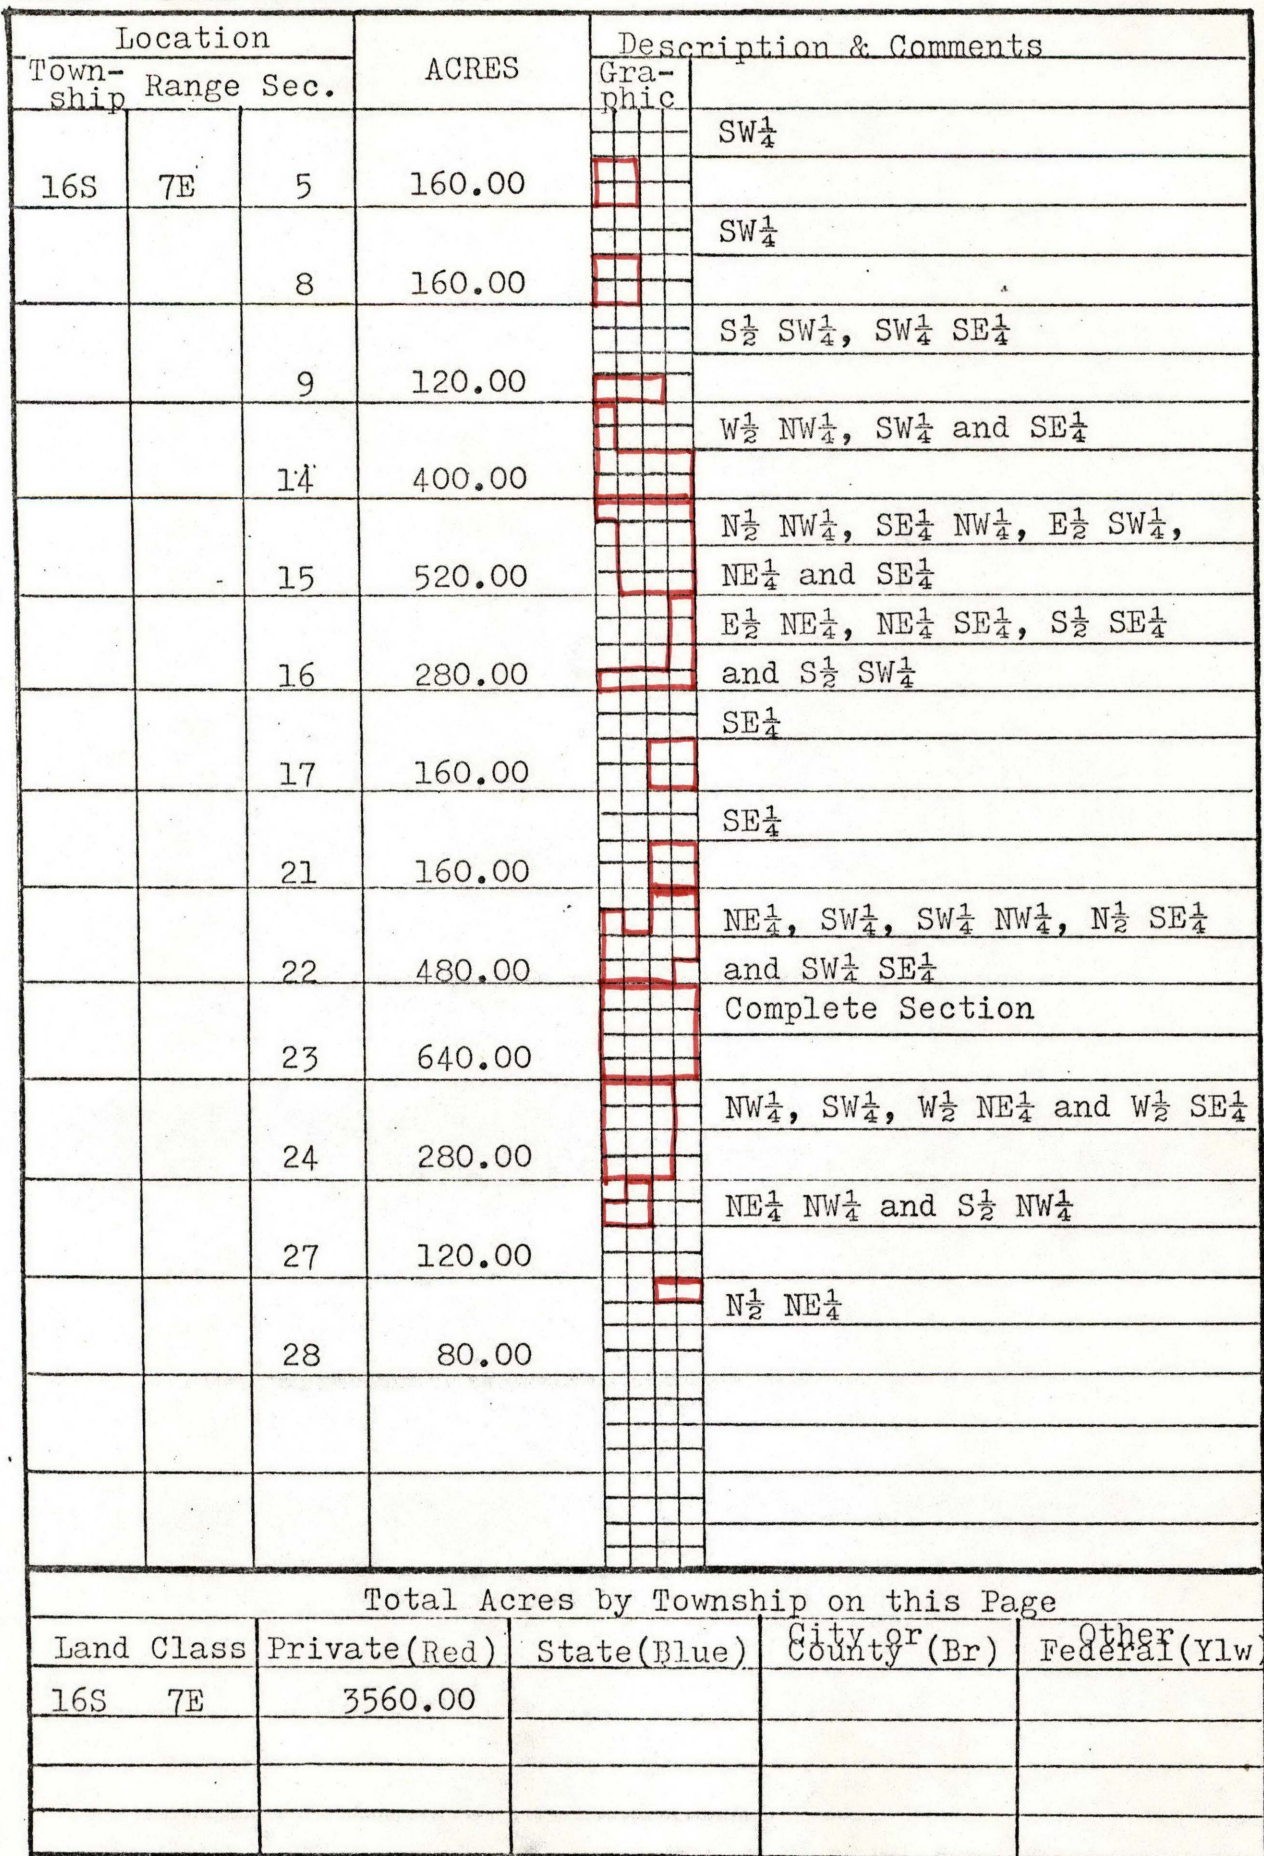 Location
ACRES
Description & Comments
Town-
ship
Range
Sec.
Gra-
phic
SW¼
16S 7E 5 160.00
SW¼
8 160.00
S½ SW¼, SW¼ SE¼
9 120.00
W½ NW¼, SW¼ and SE¼
14 400.00
N½ NW¼, SE¼ NW¼, E½ SW¼,
15 520.00 NE¼ and SE¼
E½ NE¼, NE¼ SE¼, S½ SE¼
16 280.00 and S½ SW¼
SE¼
17 160.00
SE¼
21 160.00
NE¼, SW¼, SW¼ NW¼, N½ SE¼
22 480.00 and SW¼ SE¼
Complete Section
23 640.00
NW¼, SW¼, W½ NE¼ and W½ SE¼
24 280.00
NE¼ NW¼ and S½ NW¼
27 120.00
N½ NE¼
28 80.00
Total Acres by Township on this Page
Land Class Private(Red) State(Blue) City or County (Br) Other Federal(Ylw)
16S 7E 3560.00